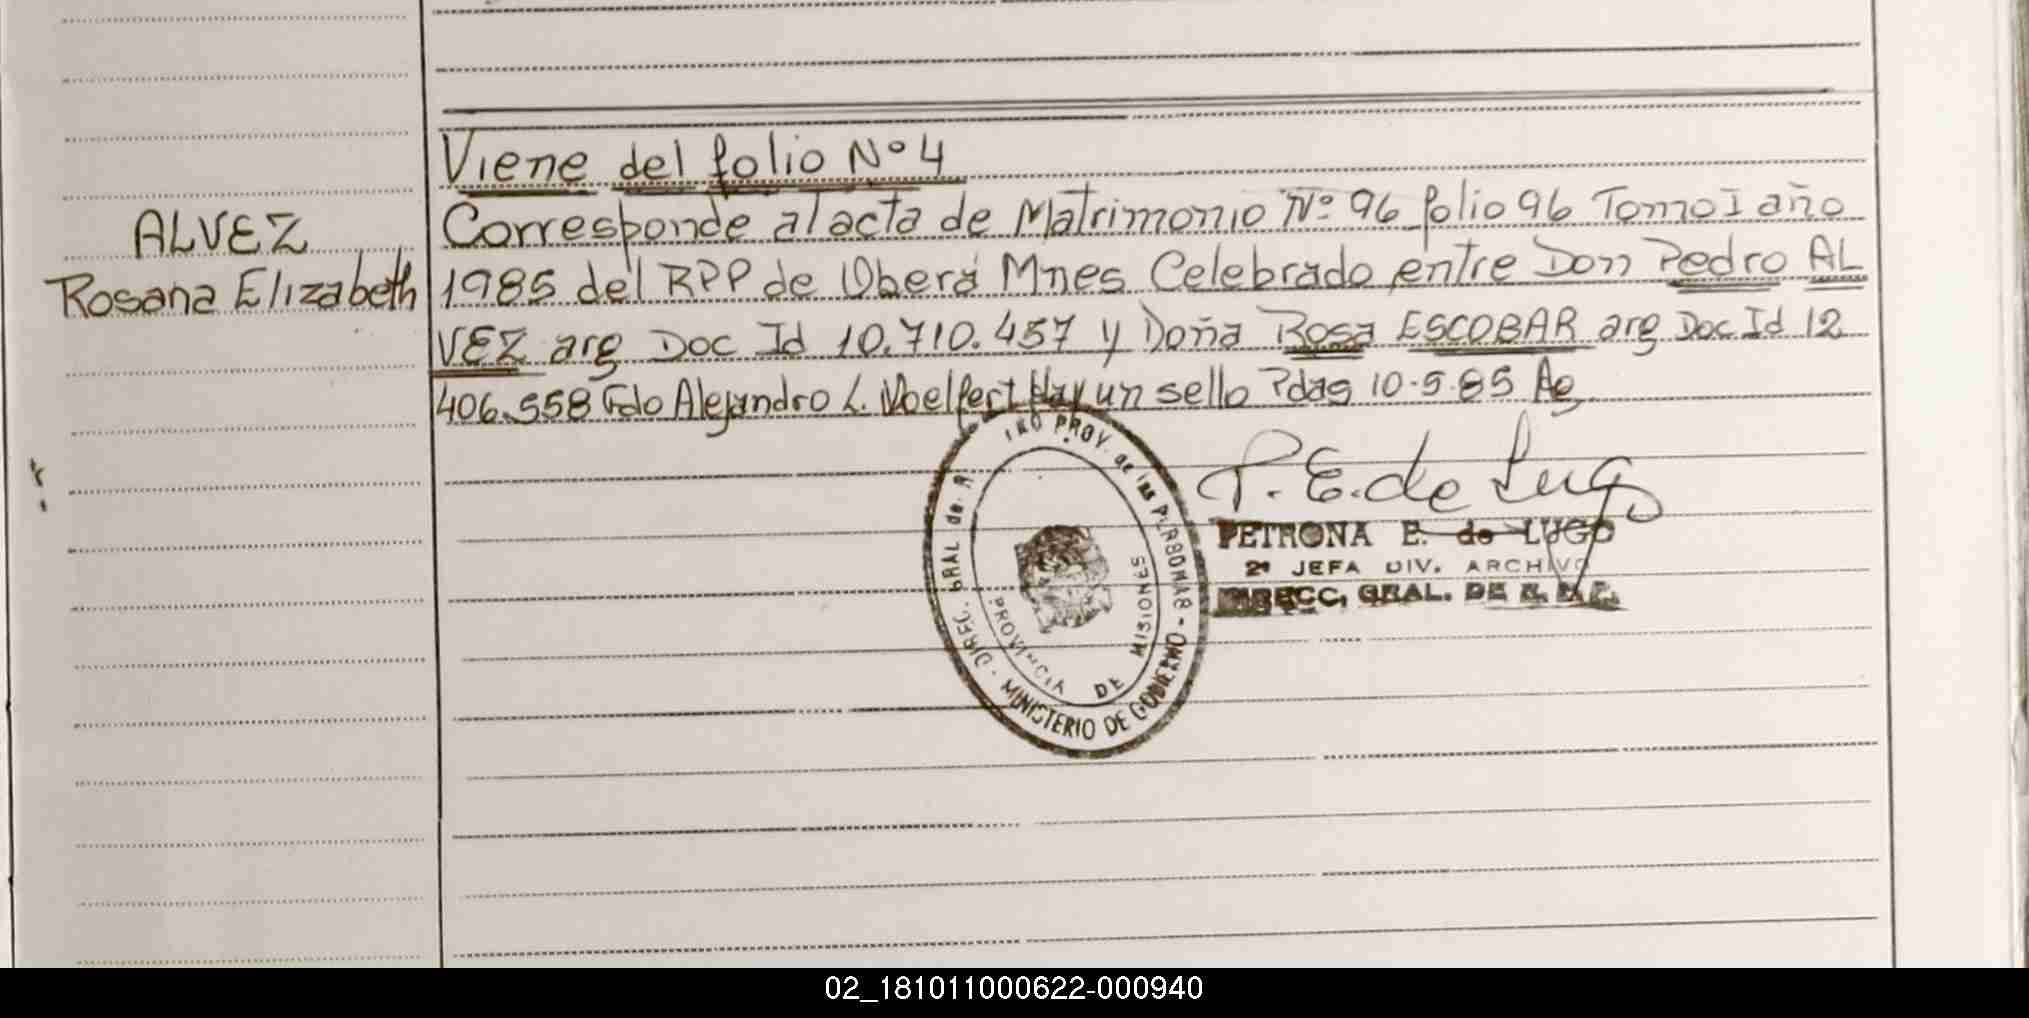 Viene del folio Nº 4
ALVEZ
Rosana Elizabeth
Corresponde al acta de Matrimonio Nº 96 folio 96 Tomo I año
1985 del RPP de Oberá Mnes Celebrado entre Don Pedro AL
VEZ arg Doc Id 10.710.457 y Doña Rosa ESCOBAR arg Doc Id 12
406.558 Fdo Alejandro L. Hay un sello Pdas 10-5-85 Ag
P. E. de Lugo
PETRONA E. de LUGO
2ª JEFA DIV. ARCHIVO
DIRECC. GRAL. DE R. P.
DIREC. GRAL de PROV. de las PERSONAS - MINISTERIO DE GOBIERNO
PROVINCIA DE MISIONES
02_181011000622-000940